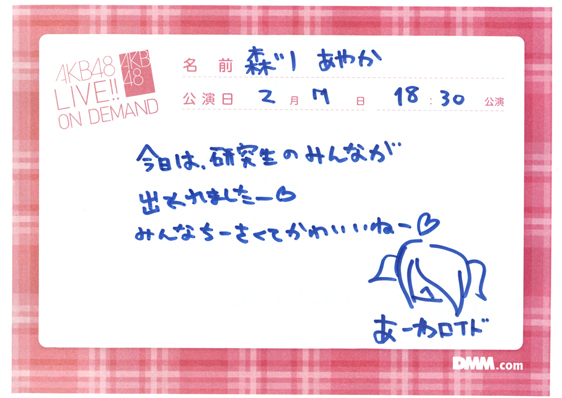 AKB48
LIVE!!
ON DEMAND
AKB
48
名前 森川 あやか
公演日 2月 7日 18:30 公演
今日は、研究生のみんなが
出てくれましたー♡
みんなちーさくてかわいいねー♡
あーやロイド
DMM.com